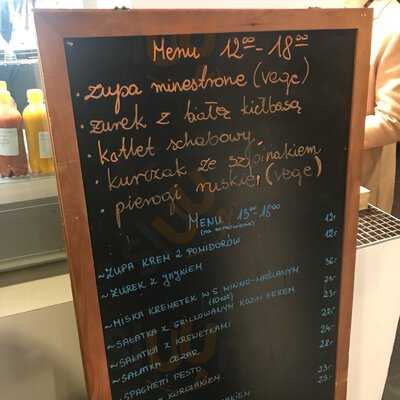 Menu 12⁰⁰-18⁰⁰
· zupa minestrone (vege)
· żurek z białą kiełbasą
· kotlet schabowy
· kurczak ze szpinakiem
· pierogi ruskie (vege)
MENU 13⁰⁰-18⁰⁰
(na zamówienie)
~ZUPA KREM Z POMIDORÓW 12,-
~ŻUREK Z JAJKIEM 12,-
~MISKA KREWETEK W S. WINNO-MAŚLANYM 36,-
(10szt)
~SAŁATKA Z GRILLOWANYM KOZIM SEREM
~SAŁATKA Z KREWETKAMI
~SAŁATKA CEZAR
~SPAGHETTI PESTO
KURCZAKIEM